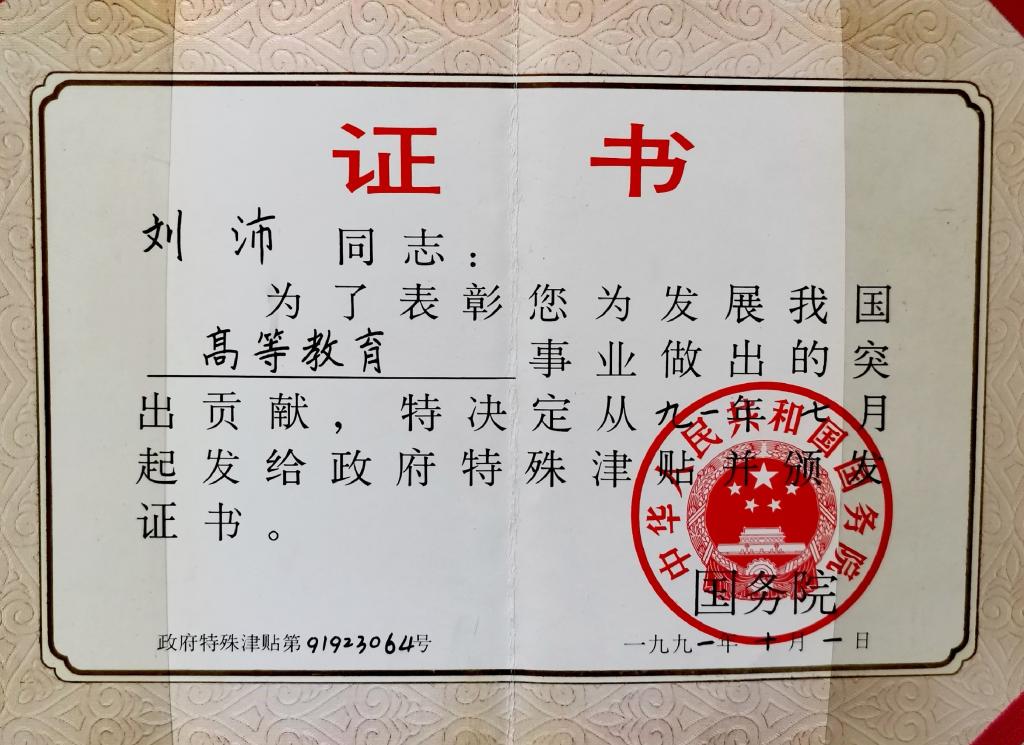 证书
刘沛 同志：
为了表彰您为发展我国
高等教育 事业做出的突
出贡献，特决定从九一年七月
起发给政府特殊津贴并颁发
证书。
中华人民共和国国务院
国务院
政府特殊津贴第91923064号
一九九一年十月一日